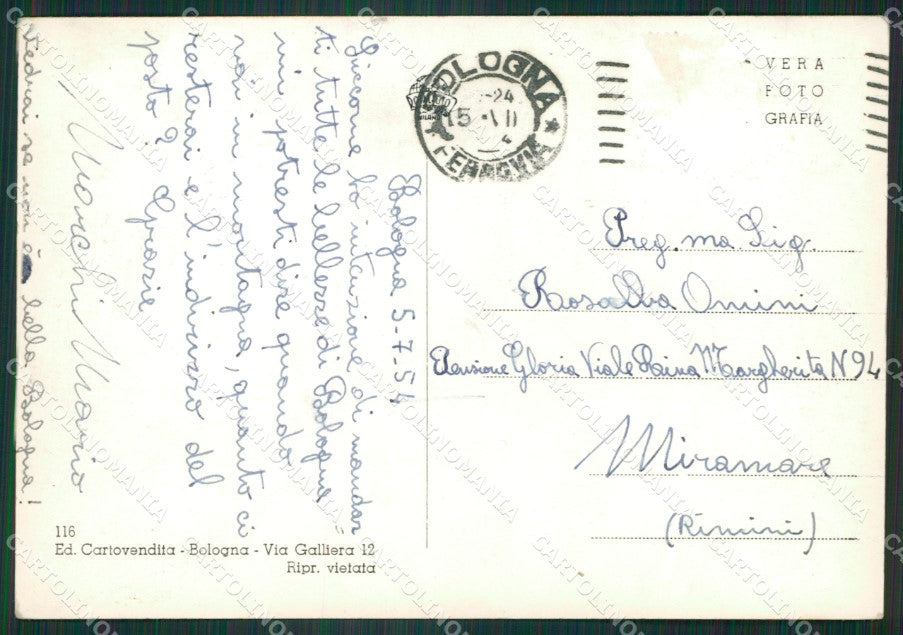 Bologna 5-7-54
Siccome ho intenzione di mandar
ti tutte le bellezze di Bologna
mi potresti dire quando
vai in montagna, quanto ci
resterai e l'indirizzo del
posto? Grazie
Marchi Mario
Vedrai se non è bella Bologna!
BOLOGNA
-24
15 VII
FERROVIA
VERA
FOTO
GRAFIA
Preg.ma Sig.
Rosalba Omini
Pensione Gloria Viale Regina Margherita N 94
Miramare
(Rimini)
116
Ed. Cartovendita - Bologna - Via Galliera 12
Ripr. vietata
CARTOLINOMANIA